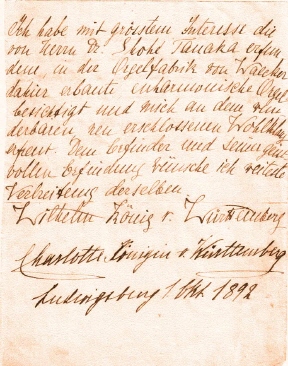 Ich habe mit grösstem Interesse die
von Herrn Dr. Shohé Tanaka erfun
dene, in der Orgelfabrik von Walcker
dahier erbaute enharmonische Orgel
besichtigt und mich an dem wun
derbaren, neu erschlossenen Wohlklang
erfreut. Dem Erfinder und seiner
vollen Erfindung wünsche ich weiteste
Verbreitung derselben.
Wilhelm König v. Württemberg
Charlotte Königin v. Württemberg
Ludwigsburg 1 Okt. 1892